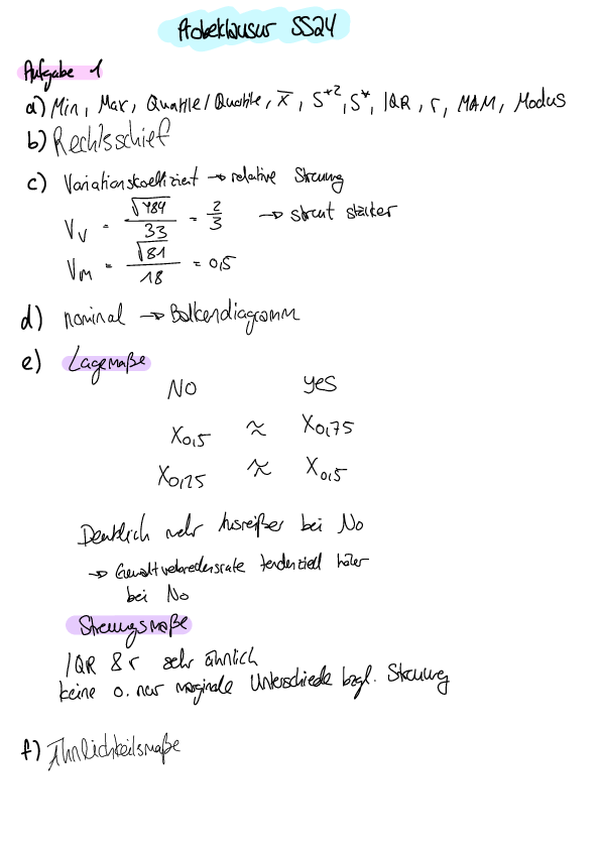 Probeklausur SS24
Aufgabe 1
a) Min, Max, Quartile/Quantile, x̄, S*², S*, IQR, r, MAM, Modus
b) Rechtsschief
c) Variationskoeffizient → relative Streuung
V_V = √484 / 33 = 2/3 → streut stärker
V_M = √81 / 18 = 0,5
d) nominal → Balkendiagramm
e) Lagemaße
NO yes
X0,5 ≈ X0,75
X0,25 ≈ X0,5
Deutlich mehr Ausreißer bei No
→ Gewaltverbrechensrate tendenziell höher
bei No
Streuungsmaße
IQR & r sehr ähnlich
keine o. nur marginale Unterschiede bzgl. Streuung
f) Ähnlichkeitsmaße